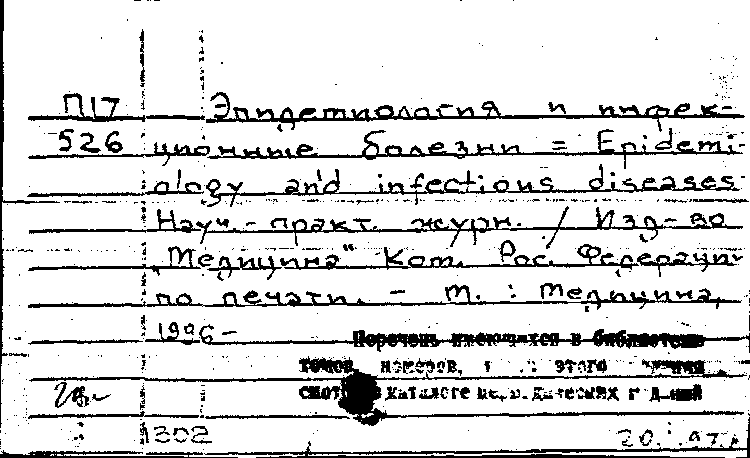 П17 Эпидемиология и инфек-
526 ционные болезни = Epidemi-
ology and infectious diseases:
Науч.-практ. журн. / Изд-во
„Медицина" Ком. Рос. Федерации
по печати. - М. : Медицина,
1996 -
Перечень имеющихся в библиотеке
томов, номеров, этого
каталоге
1302